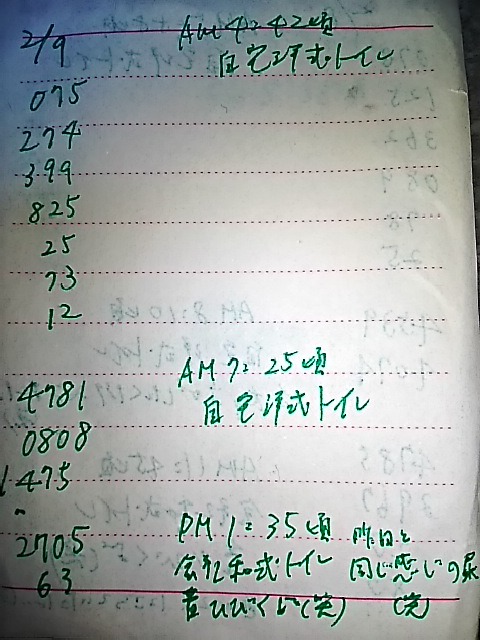 2/9 AM 4:42頃
自宅洋式トイレ
075
274
399
825
25
73
12
AM 7:25頃
4781 自宅洋式トイレ
0808
1475
2705 PM 1:35頃 昨日と
63 会社和式トイレ 同じ感じの尿
音ひびくし(笑) (笑)